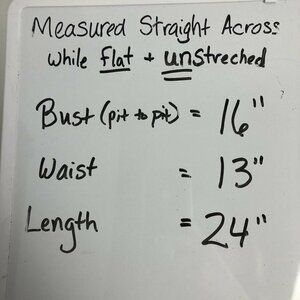 Measured Straight Across
while flat + unstreched
Bust (pit to pit) = 16"
Waist = 13"
Length = 24"